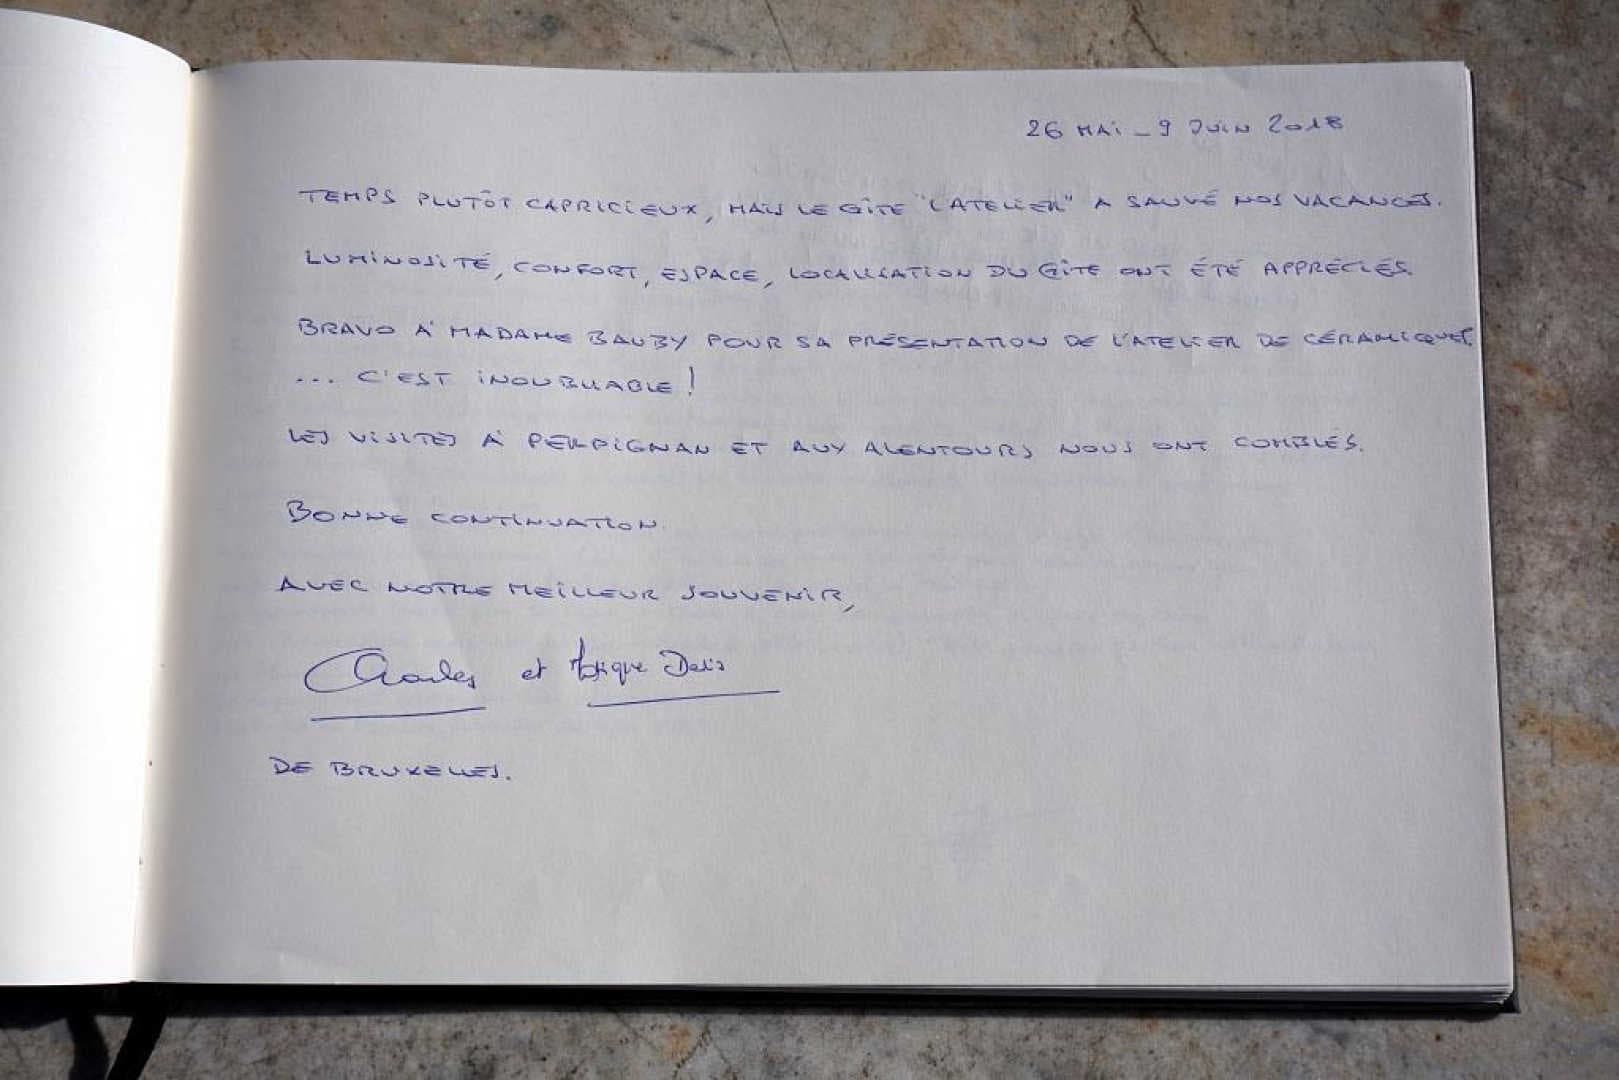 26 MAI - 9 JUIN 2018
TEMPS PLUTÔT CAPRICIEUX, MAIS LE GÎTE "L'ATELIER" A SAUVÉ NOS VACANCES.
LUMINOSITÉ, CONFORT, ESPACE, LOCALISATION DU GÎTE ONT ÉTÉ APPRÉCIÉS.
BRAVO À MADAME BAUBY POUR SA PRÉSENTATION DE L'ATELIER DE CÉRAMIQUES
... C'EST INOUBLIABLE !
LES VISITES À PERPIGNAN ET AUX ALENTOURS NOUS ONT COMBLÉS.
BONNE CONTINUATION.
AVEC NOTRE MEILLEUR SOUVENIR,
Charles et
DE BRUXELLES.